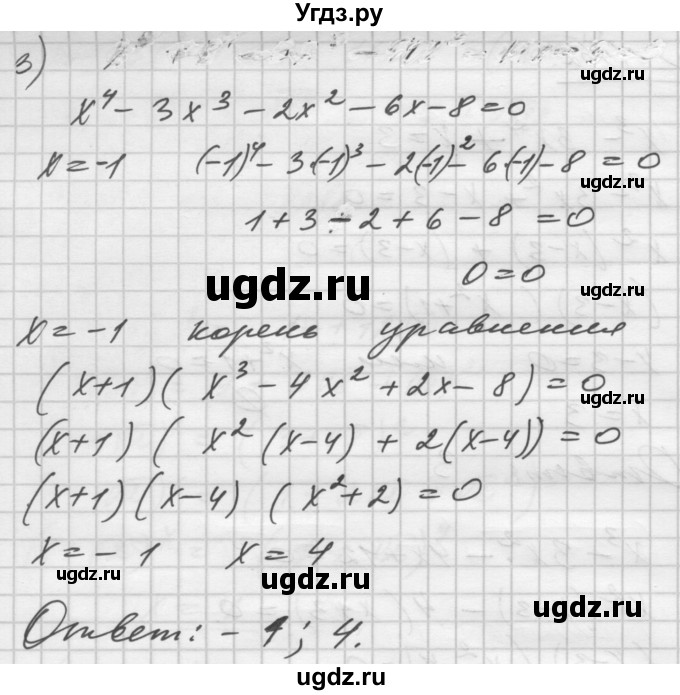 Угдз.ру
3)
ugdz.ru
x⁴ - 3x³ - 2x² - 6x - 8 = 0
ugdz.ru
x = -1 (-1)⁴ - 3·(-1)³ - 2(-1)² - 6·(-1) - 8 = 0
1 + 3 - 2 + 6 - 8 = 0
ugdz.ru
ugdz.ru
0 = 0
x = -1 корень уравнения
(x+1)(x³ - 4x² + 2x - 8) = 0
ugdz.ru
(x+1)(x²(x-4) + 2(x-4)) = 0
(x+1)(x-4)(x²+2) = 0
x = -1 x = 4
ugdz.ru
ugdz.ru
Ответ: -1; 4.
ugdz.ru
ugdz.ru